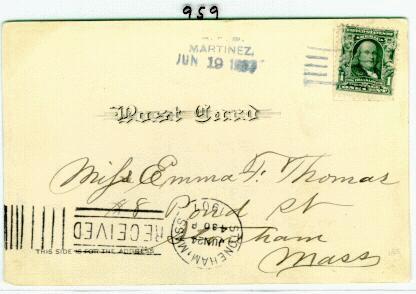 959
MARTINEZ,
JUN 19
Post Card
Miss Emma F. Thomas
#8 Pond St
Stoneham
Mass
RECEIVED
STONEHAM, MASS.
JUN 24
4 30 P
190
THIS SIDE IS FOR THE ADDRESS